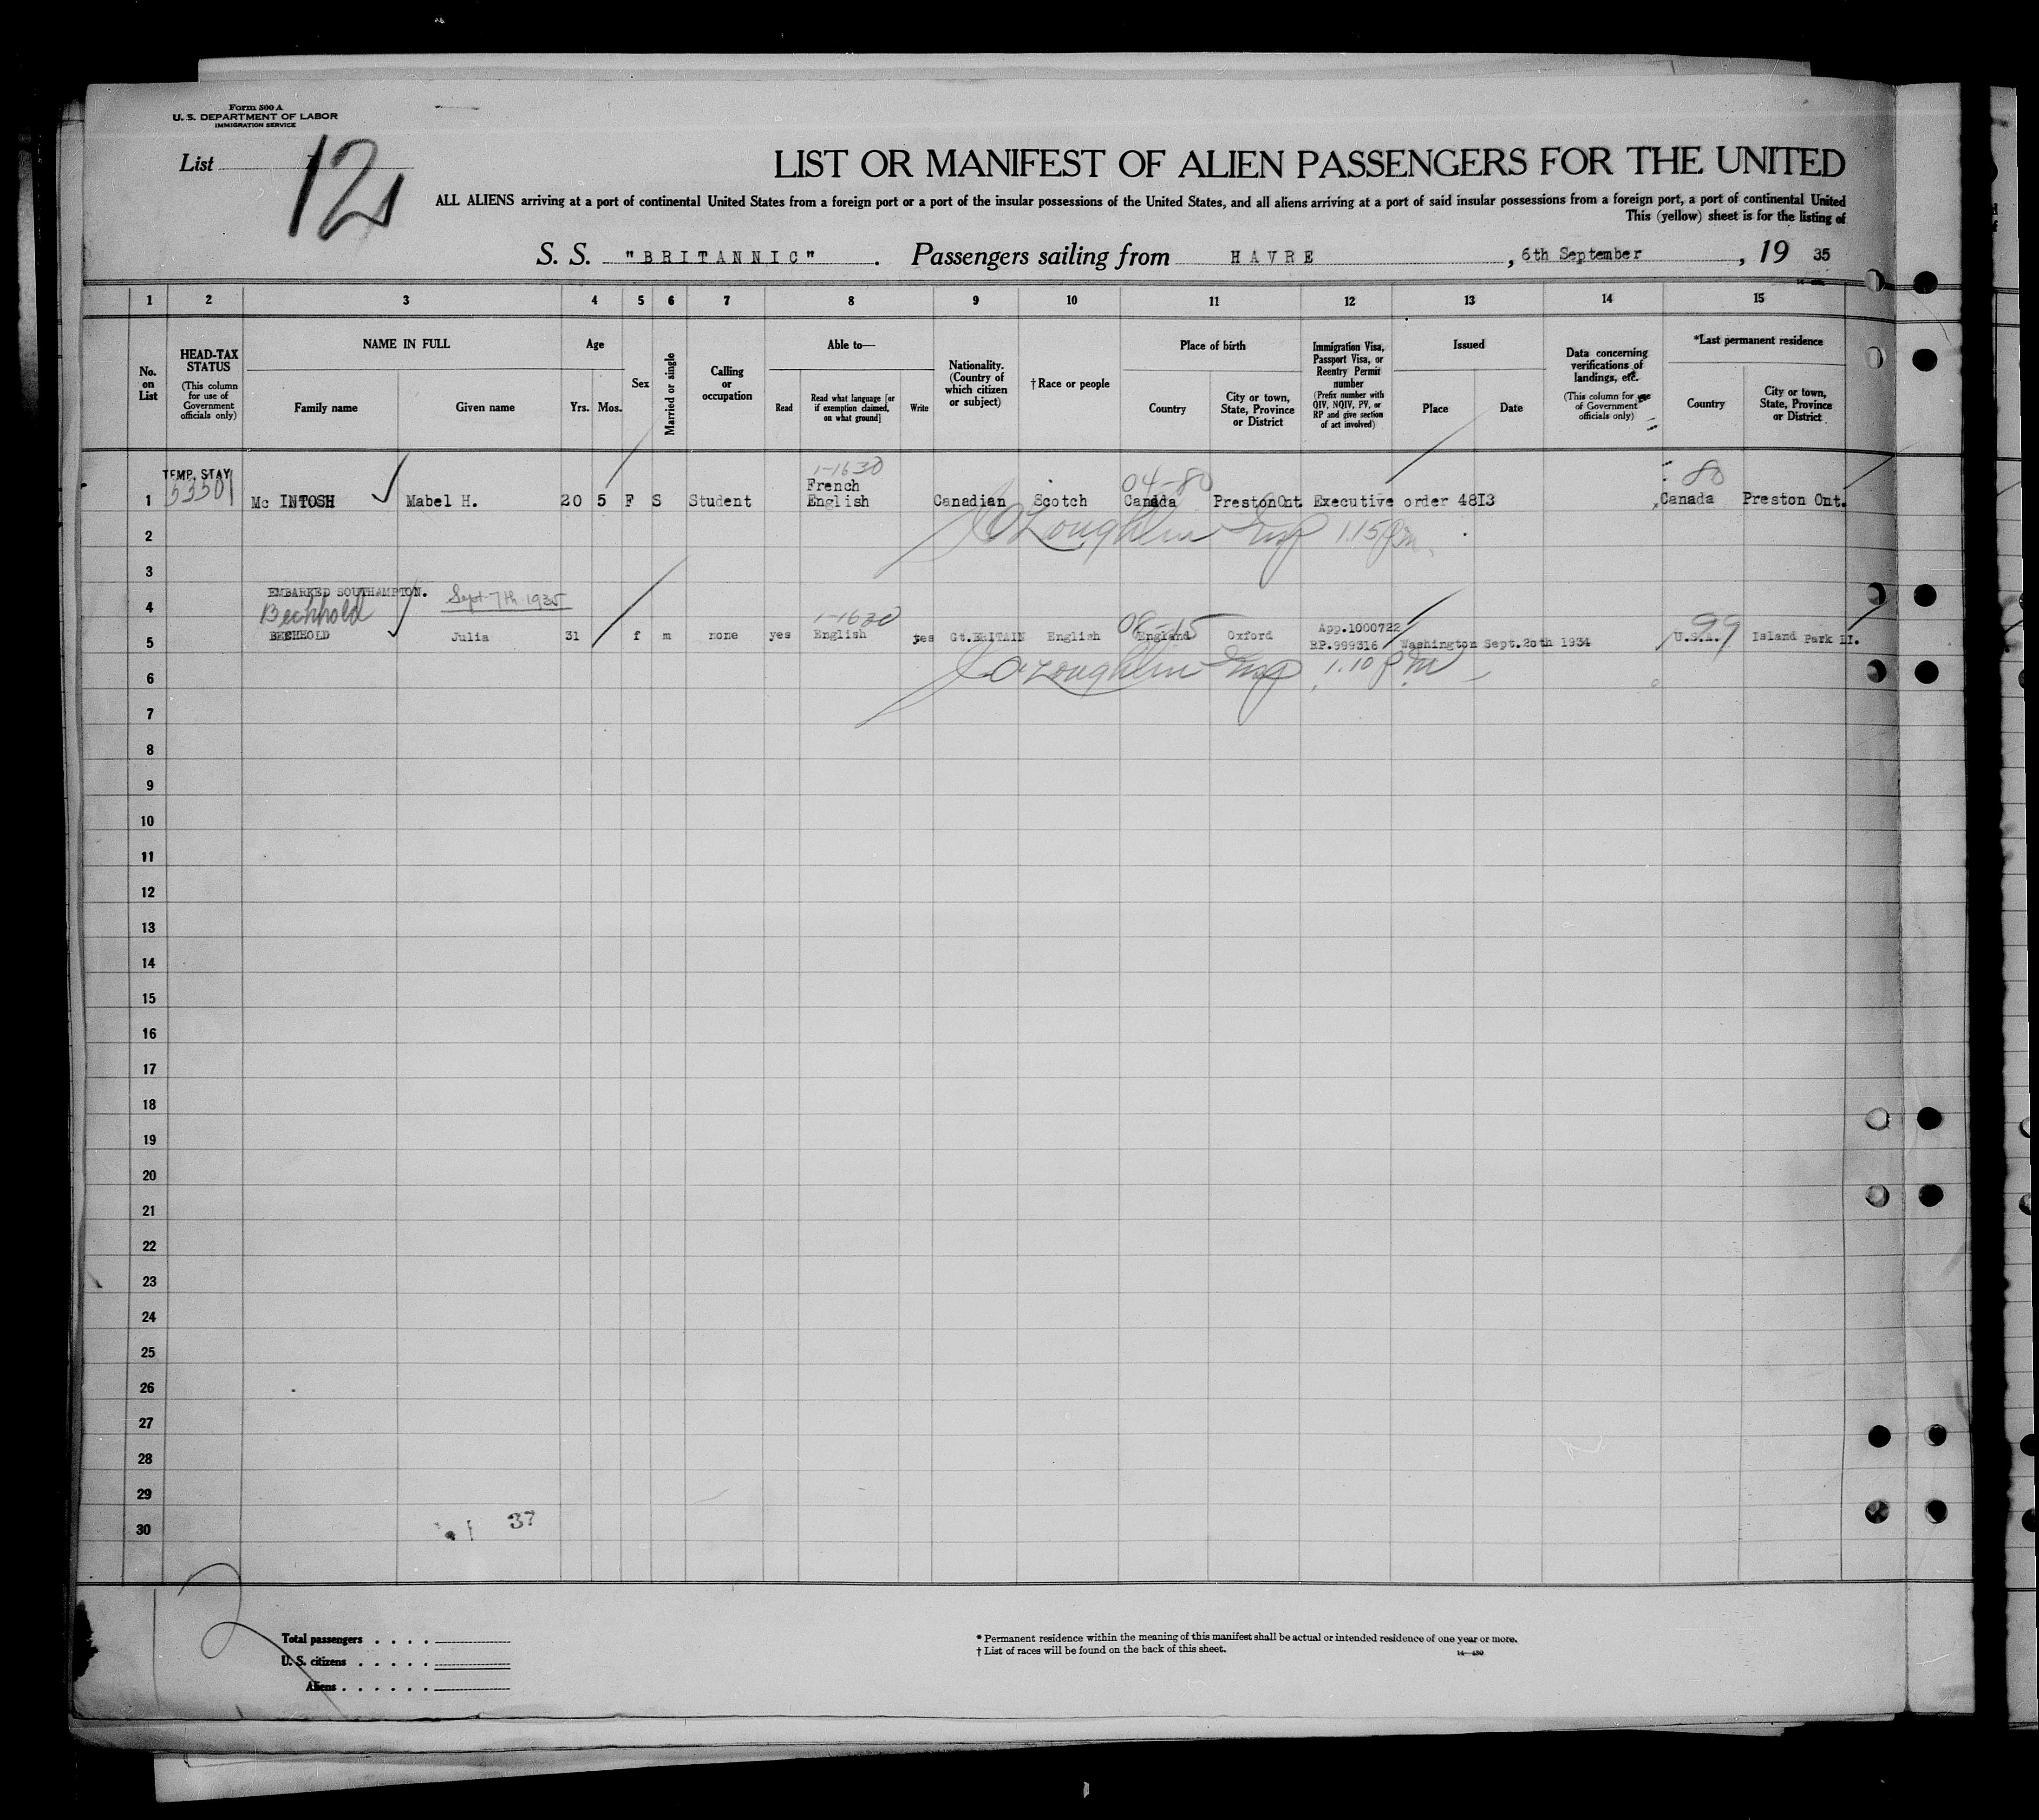 Form 500 A
U. S. DEPARTMENT OF LABOR
IMMIGRATION SERVICE
List 12
LIST OR MANIFEST OF ALIEN PASSENGERS FOR THE UNITED
ALL ALIENS arriving at a port of continental United States from a foreign port or a port of the insular possessions of the United States, and all aliens arriving at a port of said insular possessions from a foreign port, a port of continental United
This (yellow) sheet is for the listing of
S. S. "BRITANNIC". Passengers sailing from HAVRE, 6th September, 19 35
1 2 3 4 5 6 7 8 9 10 11 12 13 14 15
No. on List
HEAD-TAX STATUS
(This column for use of Government officials only)
NAME IN FULL
Family name Given name
Age
Yrs. Mos.
Sex
Married or single
Calling or occupation
Able to—
Read
Read what language [or if exemption claimed, on what ground]
Write
Nationality. (Country of which citizen or subject)
†Race or people
Place of birth
Country
City or town, State, Province or District
Immigration Visa, Passport Visa, or Reentry Permit number
(Prefix number with QIV, NQIV, PV, or RP and give section of act involved)
Issued
Place Date
Data concerning verifications of landings, etc.
(This column for use of Government officials only)
*Last permanent residence
Country
City or town, State, Province or District
TEMP. STAY 1-1630 04-80 80
53501 French
1 Mc INTOSH Mabel H. 20 5 F S Student English Canadian Scotch Canada Preston Ont. Executive order 48I3 Canada Preston Ont.
2 O'Loughlin Insp 1.15 Pm.
3
EMBARKED SOUTHAMPTON. Sept 7th 1935
4 Bechhold 1-1630 08-15 App.1000722 99
5 BECHHOLD Julia 31 f m none yes English yes Gt.BRITAIN English England Oxford RP.999316 Washington Sept.20th 1934 U.S.A. Island Park LI.
6 O'Loughlin Insp 1.10 Pm
7
8
9
10
11
12
13
14
15
16
17
18
19
20
21
22
23
24
25
26
27
28
29
30
37
Total passengers
U. S. citizens
Aliens
* Permanent residence within the meaning of this manifest shall be actual or intended residence of one year or more.
† List of races will be found on the back of this sheet.
14—430